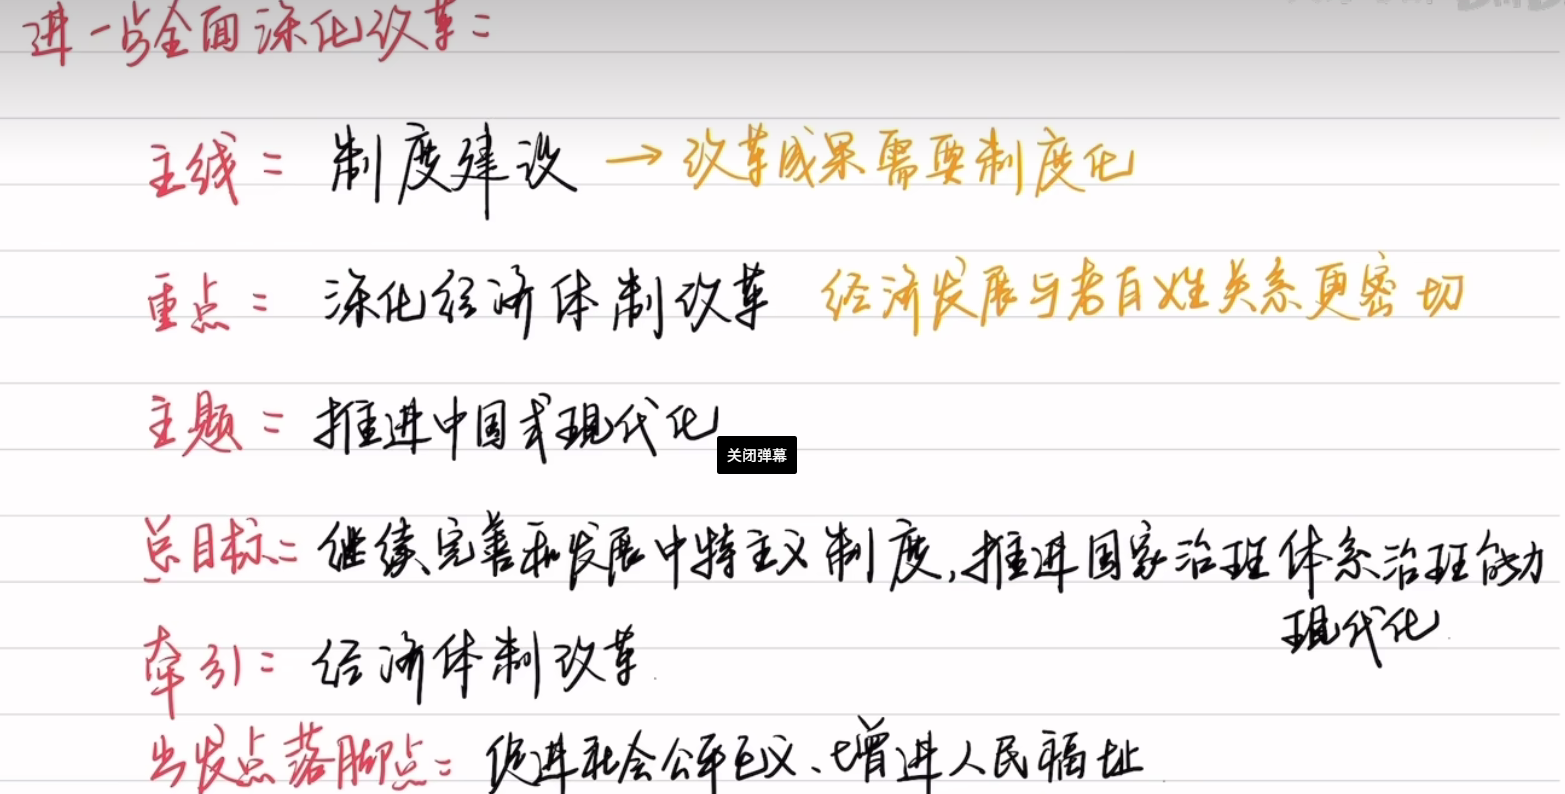 进一步全面深化改革:
主线: 制度建设 → 改革成果需要制度化
重点: 深化经济体制改革 经济发展与老百姓关系更密切
主题: 推进中国式现代化
关闭弹幕
总目标: 继续完善和发展中特主义制度,推进国家治理体系治理能力
现代化
牵引: 经济体制改革
出发点落脚点: 促进社会公平正义、增进人民福祉